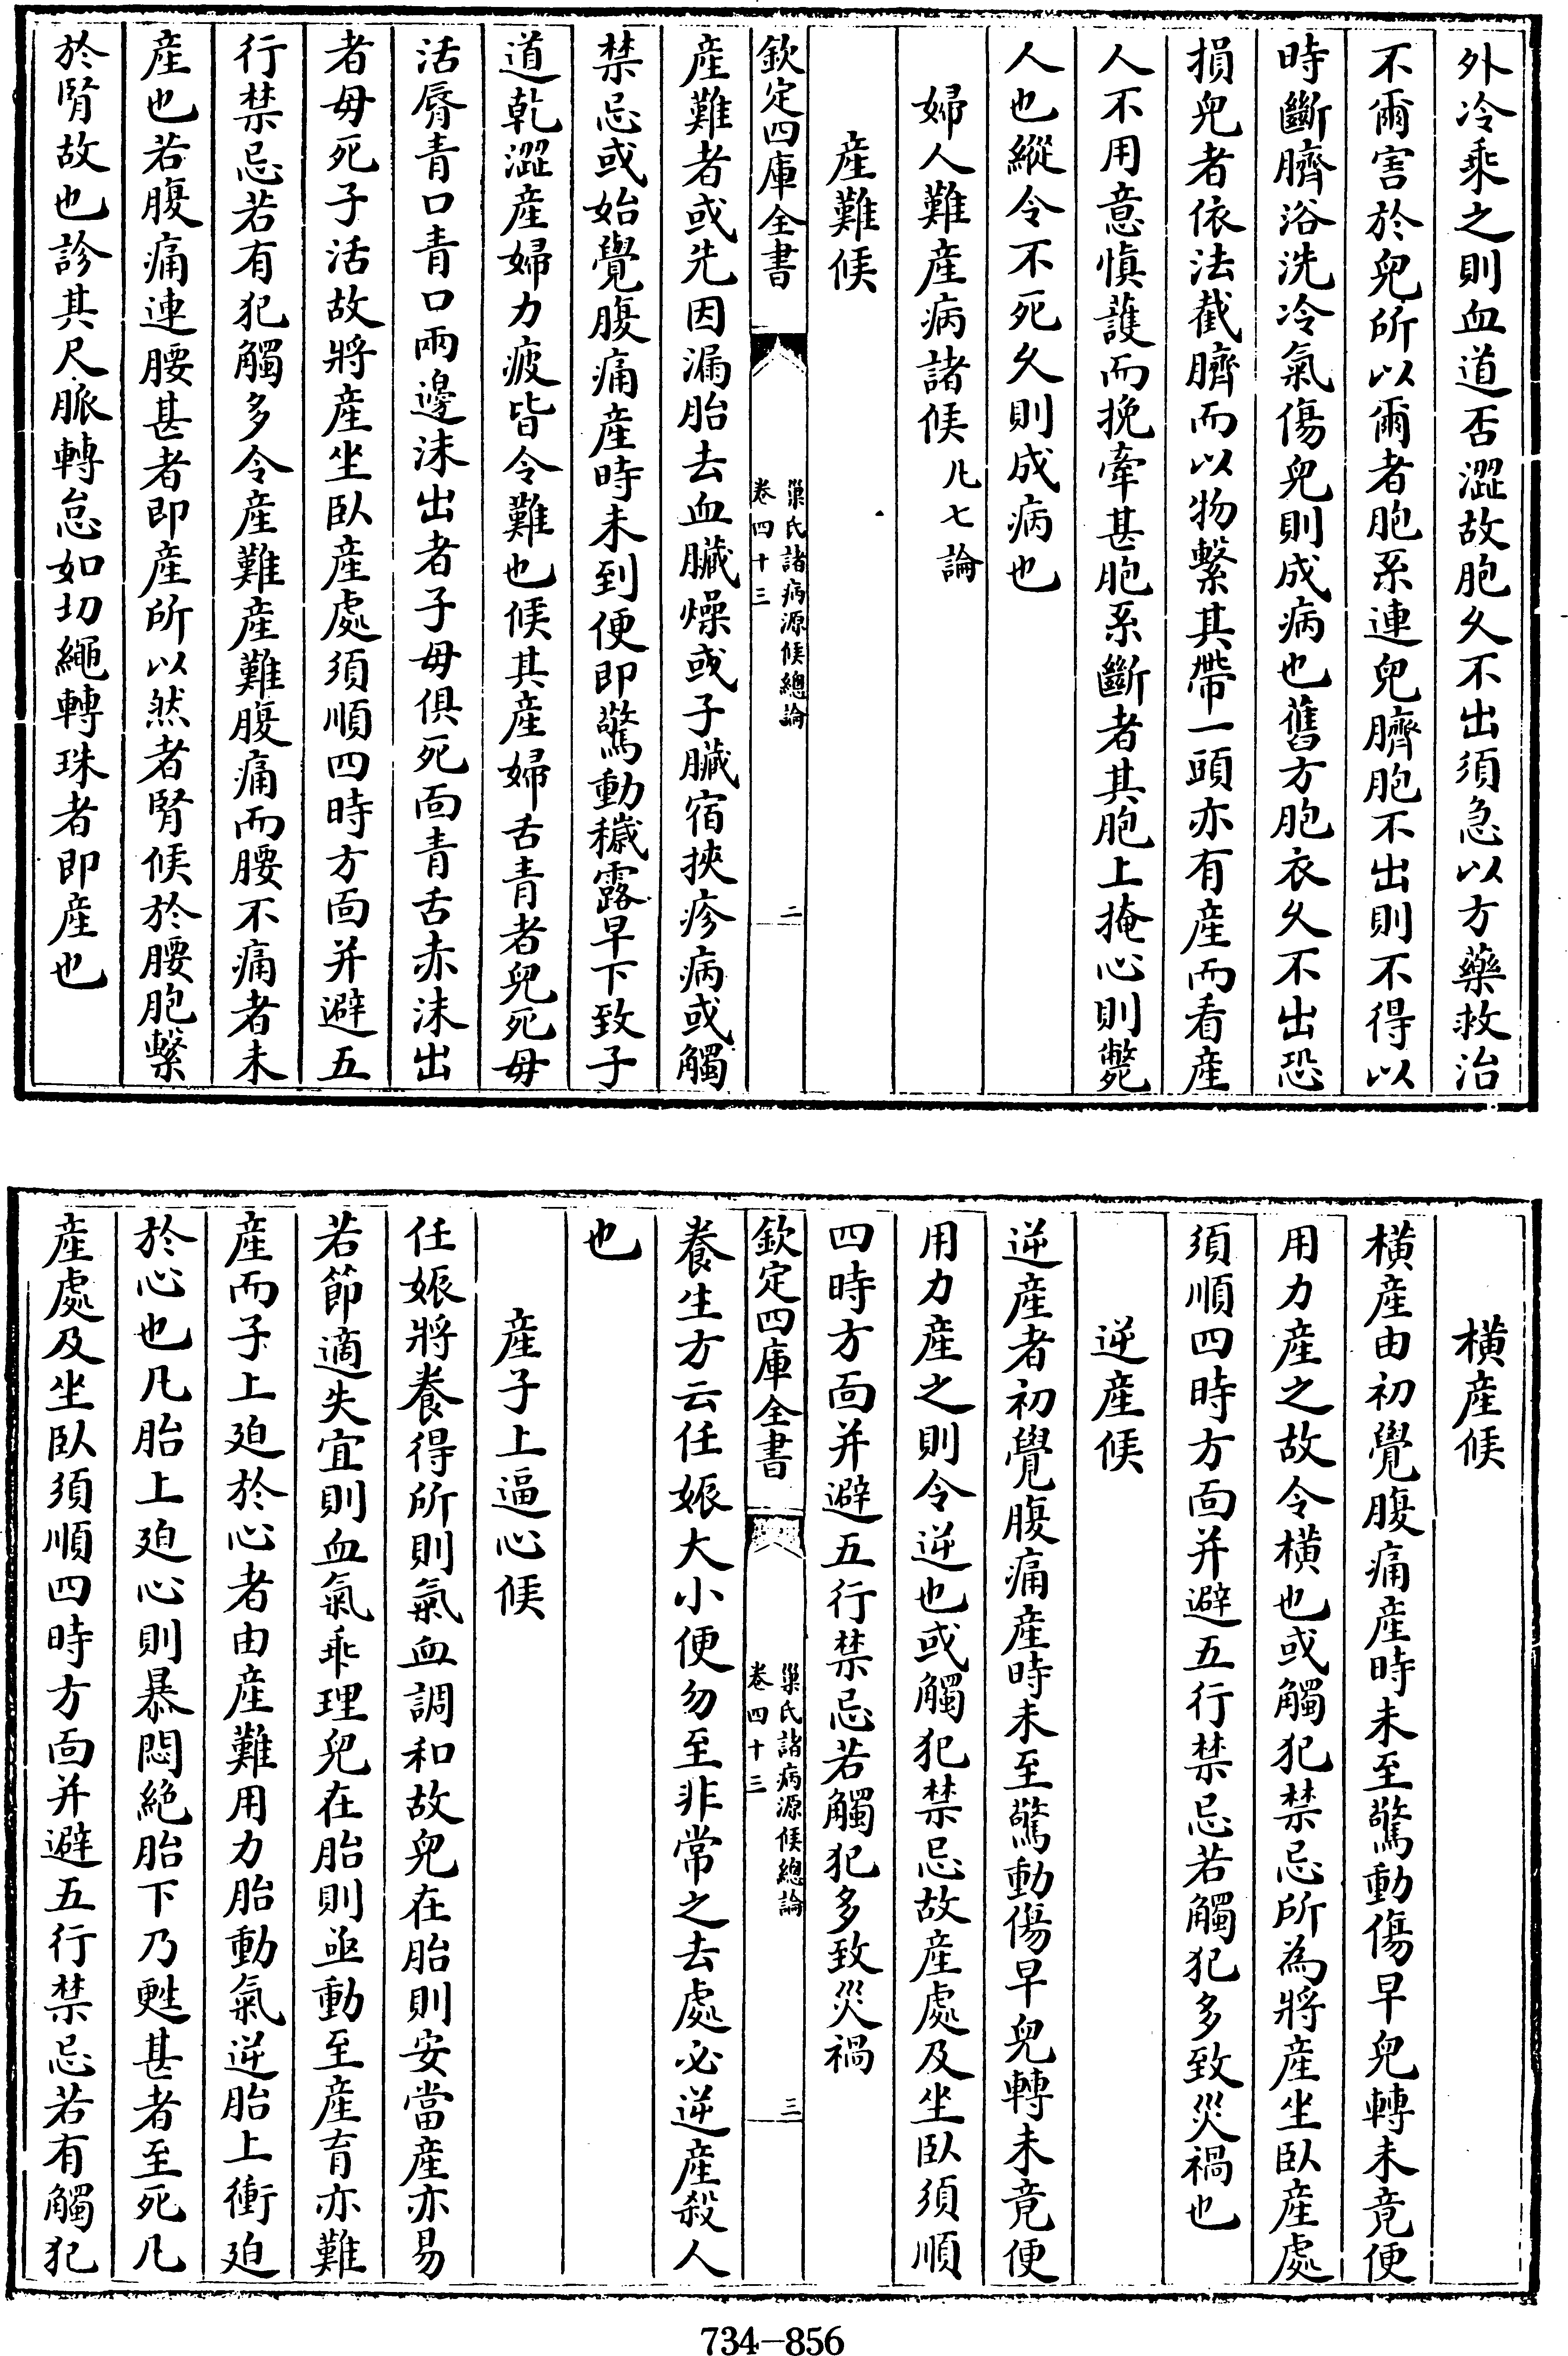 外冷乘之則血道否澀故胞久不出須急以方藥救治
不爾害於兒所以爾者胞系連兒臍胞不出則不得以
時斷臍浴洗冷氣傷兒則成病也舊方胞衣久不出恐
損兒者依法截臍而以物繫其帶一頭亦有産而看産
人不用意慎護而挽牽甚胞系斷者其胞上掩心則斃
人也縱令不死久則成病也
婦人難産病諸候凡七論
産難候
欽定四庫全書
巢氏諸病源候總論
卷四十三
二
産難者或先因漏胎去血臟燥或子臟宿挾疹病或觸
禁忌或始覺腹痛産時未到便即驚動穢露早下致子
道乾澀産婦力疲皆令難也候其産婦舌青者兒死母
活脣青口青口兩邊沫出者子母俱死面青舌赤沫出
者母死子活故將産坐臥産處須順四時方面并避五
行禁忌若有犯觸多令産難産難腹痛而腰不痛者未
産也若腹痛連腰甚者即産所以然者腎候於腰胞繫
於腎故也診其尺脈轉急如切繩轉珠者即産也
橫産候
橫産由初覺腹痛産時未至驚動傷早兒轉未竟便
用力産之故令橫也或觸犯禁忌所為將産坐臥産處
須順四時方面并避五行禁忌若觸犯多致災禍也
逆産候
逆産者初覺腹痛産時未至驚動傷早兒轉未竟便
用力産之則令逆也或觸犯禁忌故産處及坐臥須順
四時方面并避五行禁忌若觸犯多致災禍
欽定四庫全書
巢氏諸病源候總論
卷四十三
三
養生方云任娠大小便勿至非常之去處必逆産殺人
也
産子上逼心候
任娠將養得所則氣血調和故兒在胎則安當産亦易
若節適失宜則血氣乖理兒在胎則亟動至産育亦難
産而子上迫於心者由産難用力胎動氣逆胎上衝迫
於心也凡胎上迫心則暴悶絶胎下乃甦甚者至死凡
産處及坐臥須順四時方面并避五行禁忌若有觸犯
734-856